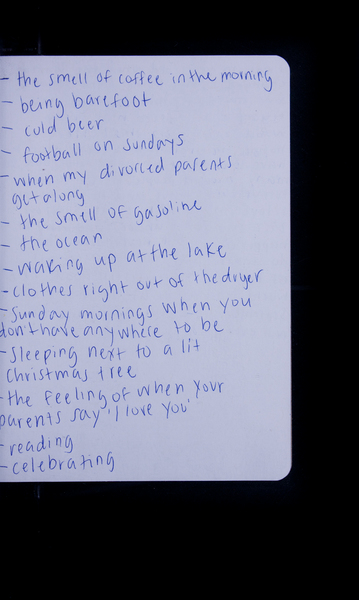 - the smell of coffee in the morning
- being barefoot
- cold beer
- football on sundays
- when my divorced parents
get along
- the smell of gasoline
- the ocean
- waking up at the lake
- clothes right out of the dryer
- Sunday mornings when you
don't have anywhere to be
- Sleeping next to a lit
christmas tree
- the feeling of when your
parents say 'I love you'
- reading
- celebrating